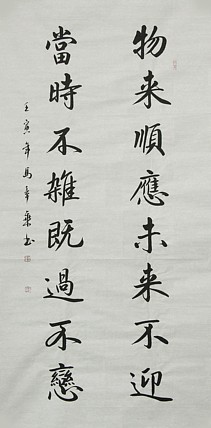 物来順應未来不迎
當時不雑既過不戀
壬寅年馬幸乘书